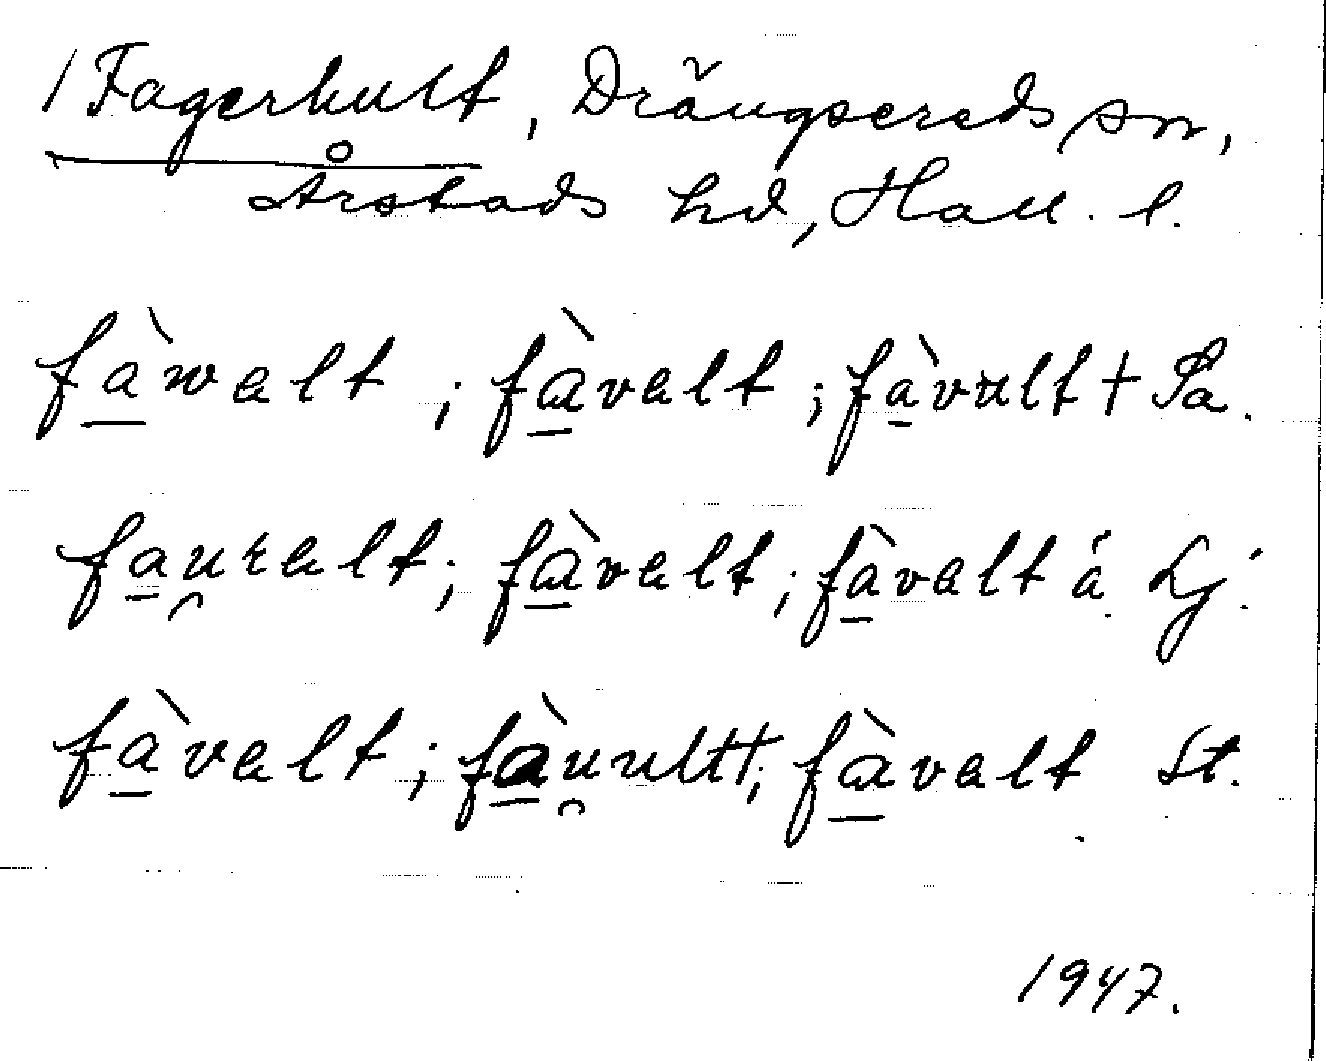 1 Fagerhult, Drängsereds sn,
Årstads hd, Hall. l.
fàwalt; fàvalt; fàvult + Sa.
fau̯ralt; fàvalt; fàvalt á Lj.
fàvalt; fàu̯ult†; fàvalt St.
1947.